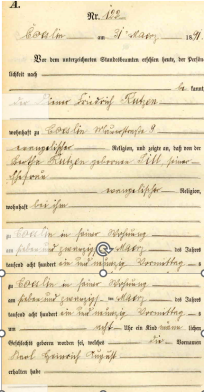 A.
Nr. 122
Coeslin am 31 Maerz 1891
Vor dem unterzeichneten Standesbeamten erschien heute, der Persön-
lichkeit nach
be kannt,
der Diener Friedrich Kutzen
wohnhaft zu Coeslin Mauerstraße 9
evangelischer Religion, und zeigte an, daß von der
Bertha Kutzen geborenen Dill, seiner
Ehefrau
evangelischer Religion,
wohnhaft bei ihm
zu Coeslin in seiner Wohnung
am sieben und zwanzigsten Maerz des Jahres
tausend acht hundert ein und neunzig Vormittags
zu Coeslin in seiner Wohnung
am sieben und zwanzigsten Maerz des Jahres
tausend acht hundert ein und neunzig Vormittags
um acht Uhr ein Kind männ lichen
Geschlechts geboren worden sei, welches die Vornamen
Karl Heinrich August
erhalten habe